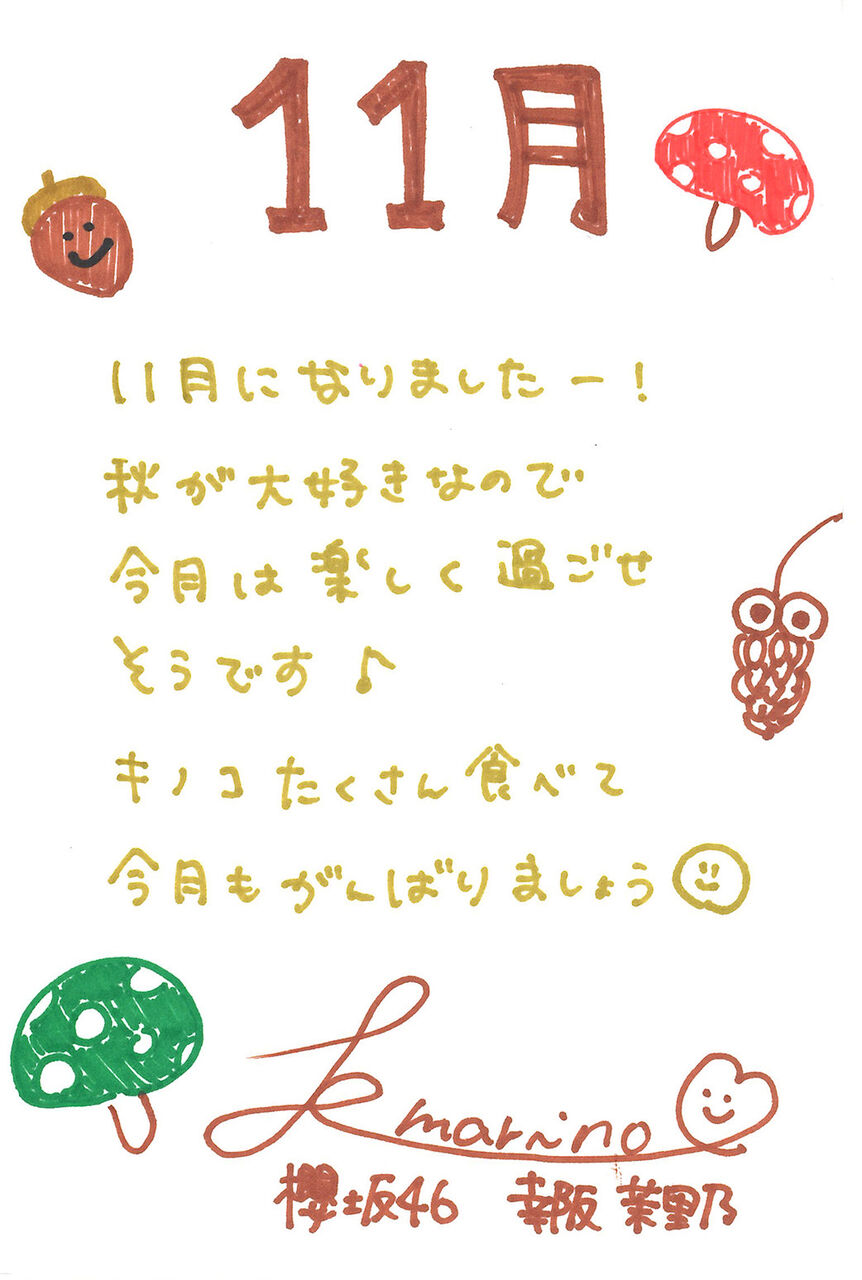 11月
11月になりましたー！
秋が大好きなので
今月は楽しく過ごせ
そうです♪
キノコたくさん食べて
今月もがんばりましょう
k marino
櫻坂46 幸阪 茉里乃